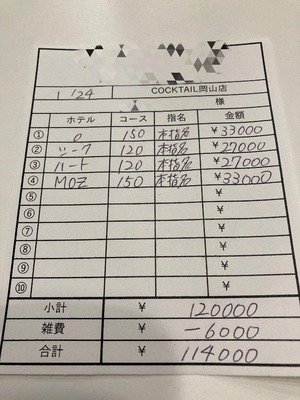 1/24 COCKTAIL岡山店
様
ホテル コース 指名 金額
① O 150 本指名 ¥33000
② シーク 120 本指名 ¥27000
③ ハート 120 本指名 ¥27000
④ MOZ 150 本指名 ¥33000
⑤ ¥
⑥ ¥
⑦ ¥
⑧ ¥
⑨ ¥
⑩ ¥
小計 ¥ 120000
雑費 ¥ -6000
合計 ¥ 114000